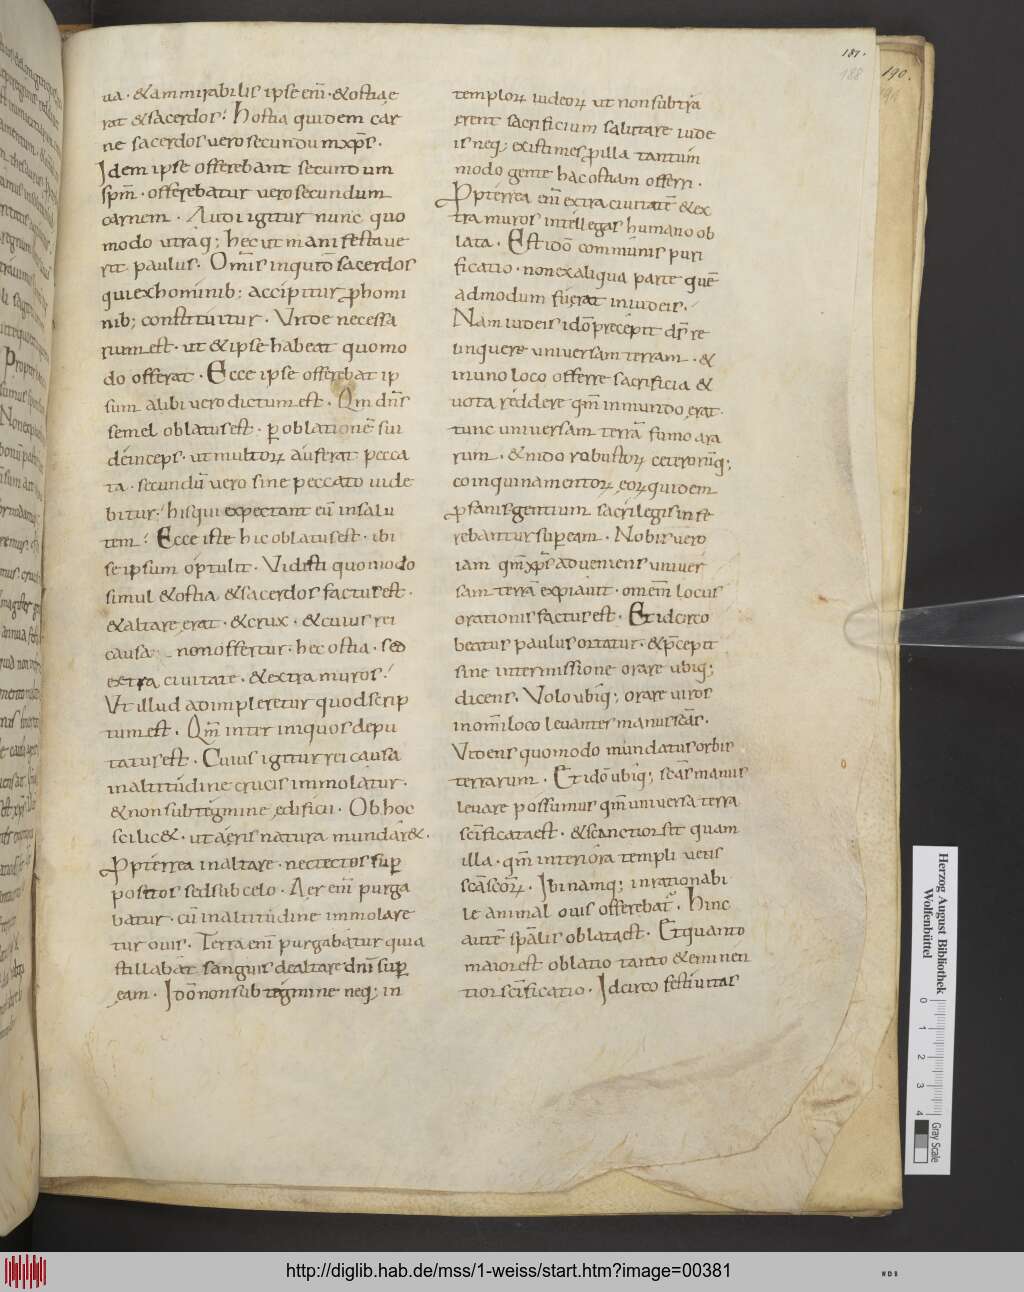 187.
188
190.
ua · & ammirabilis ipse eni͞ · & ostia e
rat & sacerdos : Hostia quidem car
ne sacerdos vero secundum xp͞s ·
Idem ipse offerebant secundum
spm̄ · offerebatur vero secundum
carnem · Audi igitur nunc quo
modo utraq; hec ut manifestaue
rit paulus · Om̄is inquid̄ sacerdos
qui ex hominib; accipitur ꝓ homi
nib; constituitur · Vnde necessa
rum est · ut & ipse habeat quomo
do offerat · Ecce ipse offerebat ip
sum alibi vero dictum est · Qm̄ dn̄s
semel oblatus est · ꝑ oblationē sui
deinceps · ut multoꝝ auferat pecca
ta · secundū vero sine peccato uide
bitur : his qui expectant eū in salu
tem : Ecce iste hic oblatus est · ibi
se ipsum optulit · Vidisti quomodo
simul & ostia & sacerdos factus est ·
& altare erat · & crux · & cuius rei
causa non offertur · hec ostia · sed
extra ciuitate · & extra muros :
Vt illud adimpleretur quod scrip
tum est · Qm̄ inter iniquos depu
tatus est · Cuius igitur rei causa
in altitudine crucis immolatur ·
& non sub tegmine edificii · Ob hoc
scilic& · ut aeris natura mundar& ·
Ꝓpterrea in altare · nec tectos suꝑ
positos sed sub celo · Aer eni͞ purga
batur · cū in altitudine immolare
tur ouis · Terra eni͞ purgabatur quia
stillabat sanguis de altare dn̄i suꝑ
eam · Idō non sub tegmine neq; in
temploꝝ iudeoꝝ ut non subtra
erent sacrificium salutare iude
is neq; existimes ꝓ illa tantum
modo gente hac ostiam offerri ·
Ꝓpterrea eni͞ extra ciuitatē & ex
tra muros intellegas humano ob
lata · Est idō communis puri
ficatio · non ex aliqua parte quē
admodum fuerat in iudeis ·
Nam iudeis idō precepit ds̄ re
linquere uniuersam terram · &
in uno loco offerre sacrificia &
uota reddere qm̄ inmundo erat ·
tunc uniuersam terrā fumo ara
rum · & nido robustoꝝ ceterorūq;
coinquinamentoꝝ eoꝝ quidem
ꝓfanis gentium sacrilegis inse
rebantur suꝑ eam · Nobis vero
iam qm̄ xp͞s adueniens uniuer
sam terrā expiauit · omēm locus
orationis factus est · Et idcirco
beatus paulus ortatur · & p̄cepit
sine intermissione orare ubiq;
dicens · Volo ubiq; orare uiros
in om̄i loco leuantes manus sc̄as ·
Videns quomodo mundatus orbis
terrarum · Et idō ubiq; sc̄as manus
leuare possumus qm̄ uniuersa terra
sc̄ificata est · & sc̄anctior set quam
illa · qm̄ interiora templi uetis
sc̄a sc̄oꝝ · Ibi namq; inrationabi
le animal ouis offerebat · Hinc
autē sp̄alis oblata est · Et quanto
maior est oblatio tanto & eminen
tior sc̄ificatio · Idcirco festiuitas
Herzog August Bibliothek
Wolfenbüttel
0
1
2
3
4
Gray Scale
http://diglib.hab.de/mss/1-weiss/start.htm?image=00381